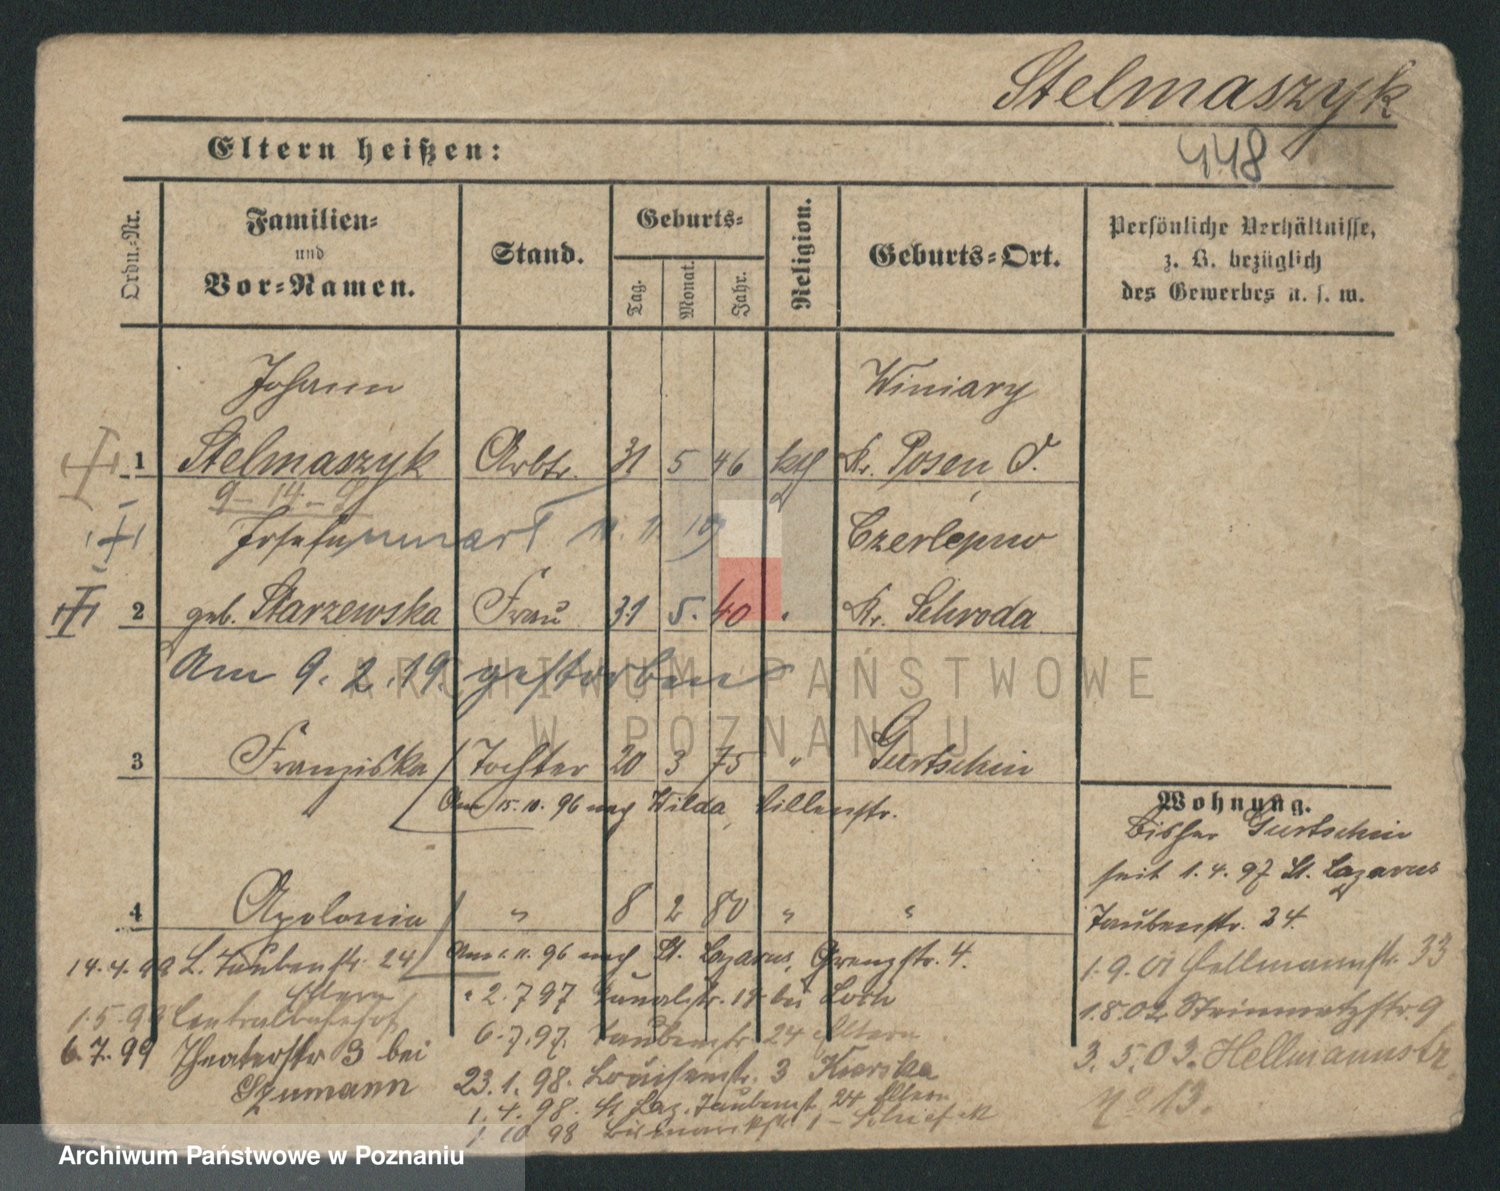 Stelmaszyk
448
Eltern heißen:
Ordn.-Nr.
Familien-
und
Vor-Namen.
Stand.
Geburts-
Tag.
Monat.
Jahr.
Religion.
Geburts-Ort.
Persönliche Verhältnisse,
z. B. bezüglich
des Gewerbes u. s. w.
Johann Winiary
1 Stelmaszyk Arbtr. 31 5 46 kth Kr. Posen O.
9-14-9
Josefa 11. 11. 19 Czerlejno
2 geb. Starzewska Frau 31 5. 40 " Kr. Schroda
Am 9. 2. 19. gestorben
3 Franziska Tochter 20 3 75 " Gurtschin
Am 15. 10. 96 nach Wilda, Lillenstr.
4 Apolonia " 8 2 80 " "
Am 11. 96 nach St. Lazarus, Grenzstr. 4.
" 2. 7 97 bei
6. 7. 97. Taubenstr. 24 Eltern
23. 1. 98. Louisenstr. 3
1. 4. 98. St Laz. Taubenst. 24 Eltern
1 10 98 Bismarckstr. 1
14. 4. 99 L. Taubenstr. 24
Eltern
1. 5. 99 Centralbahnhof
6. 7. 99 Theaterstr 3 bei
Szumann
Wohnung.
bisher Gurtschin
seit 1. 4. 97 St. Lazarus
Taubenstr. 24.
1. 9. 01 Hellmannstr. 33
1. 8. 02 Steinmetzstr. 9
3. 5. 03. Hellmannstr.
No 13.
ARCHIWUM PAŃSTWOWE
W POZNANIU
Archiwum Państwowe w Poznaniu